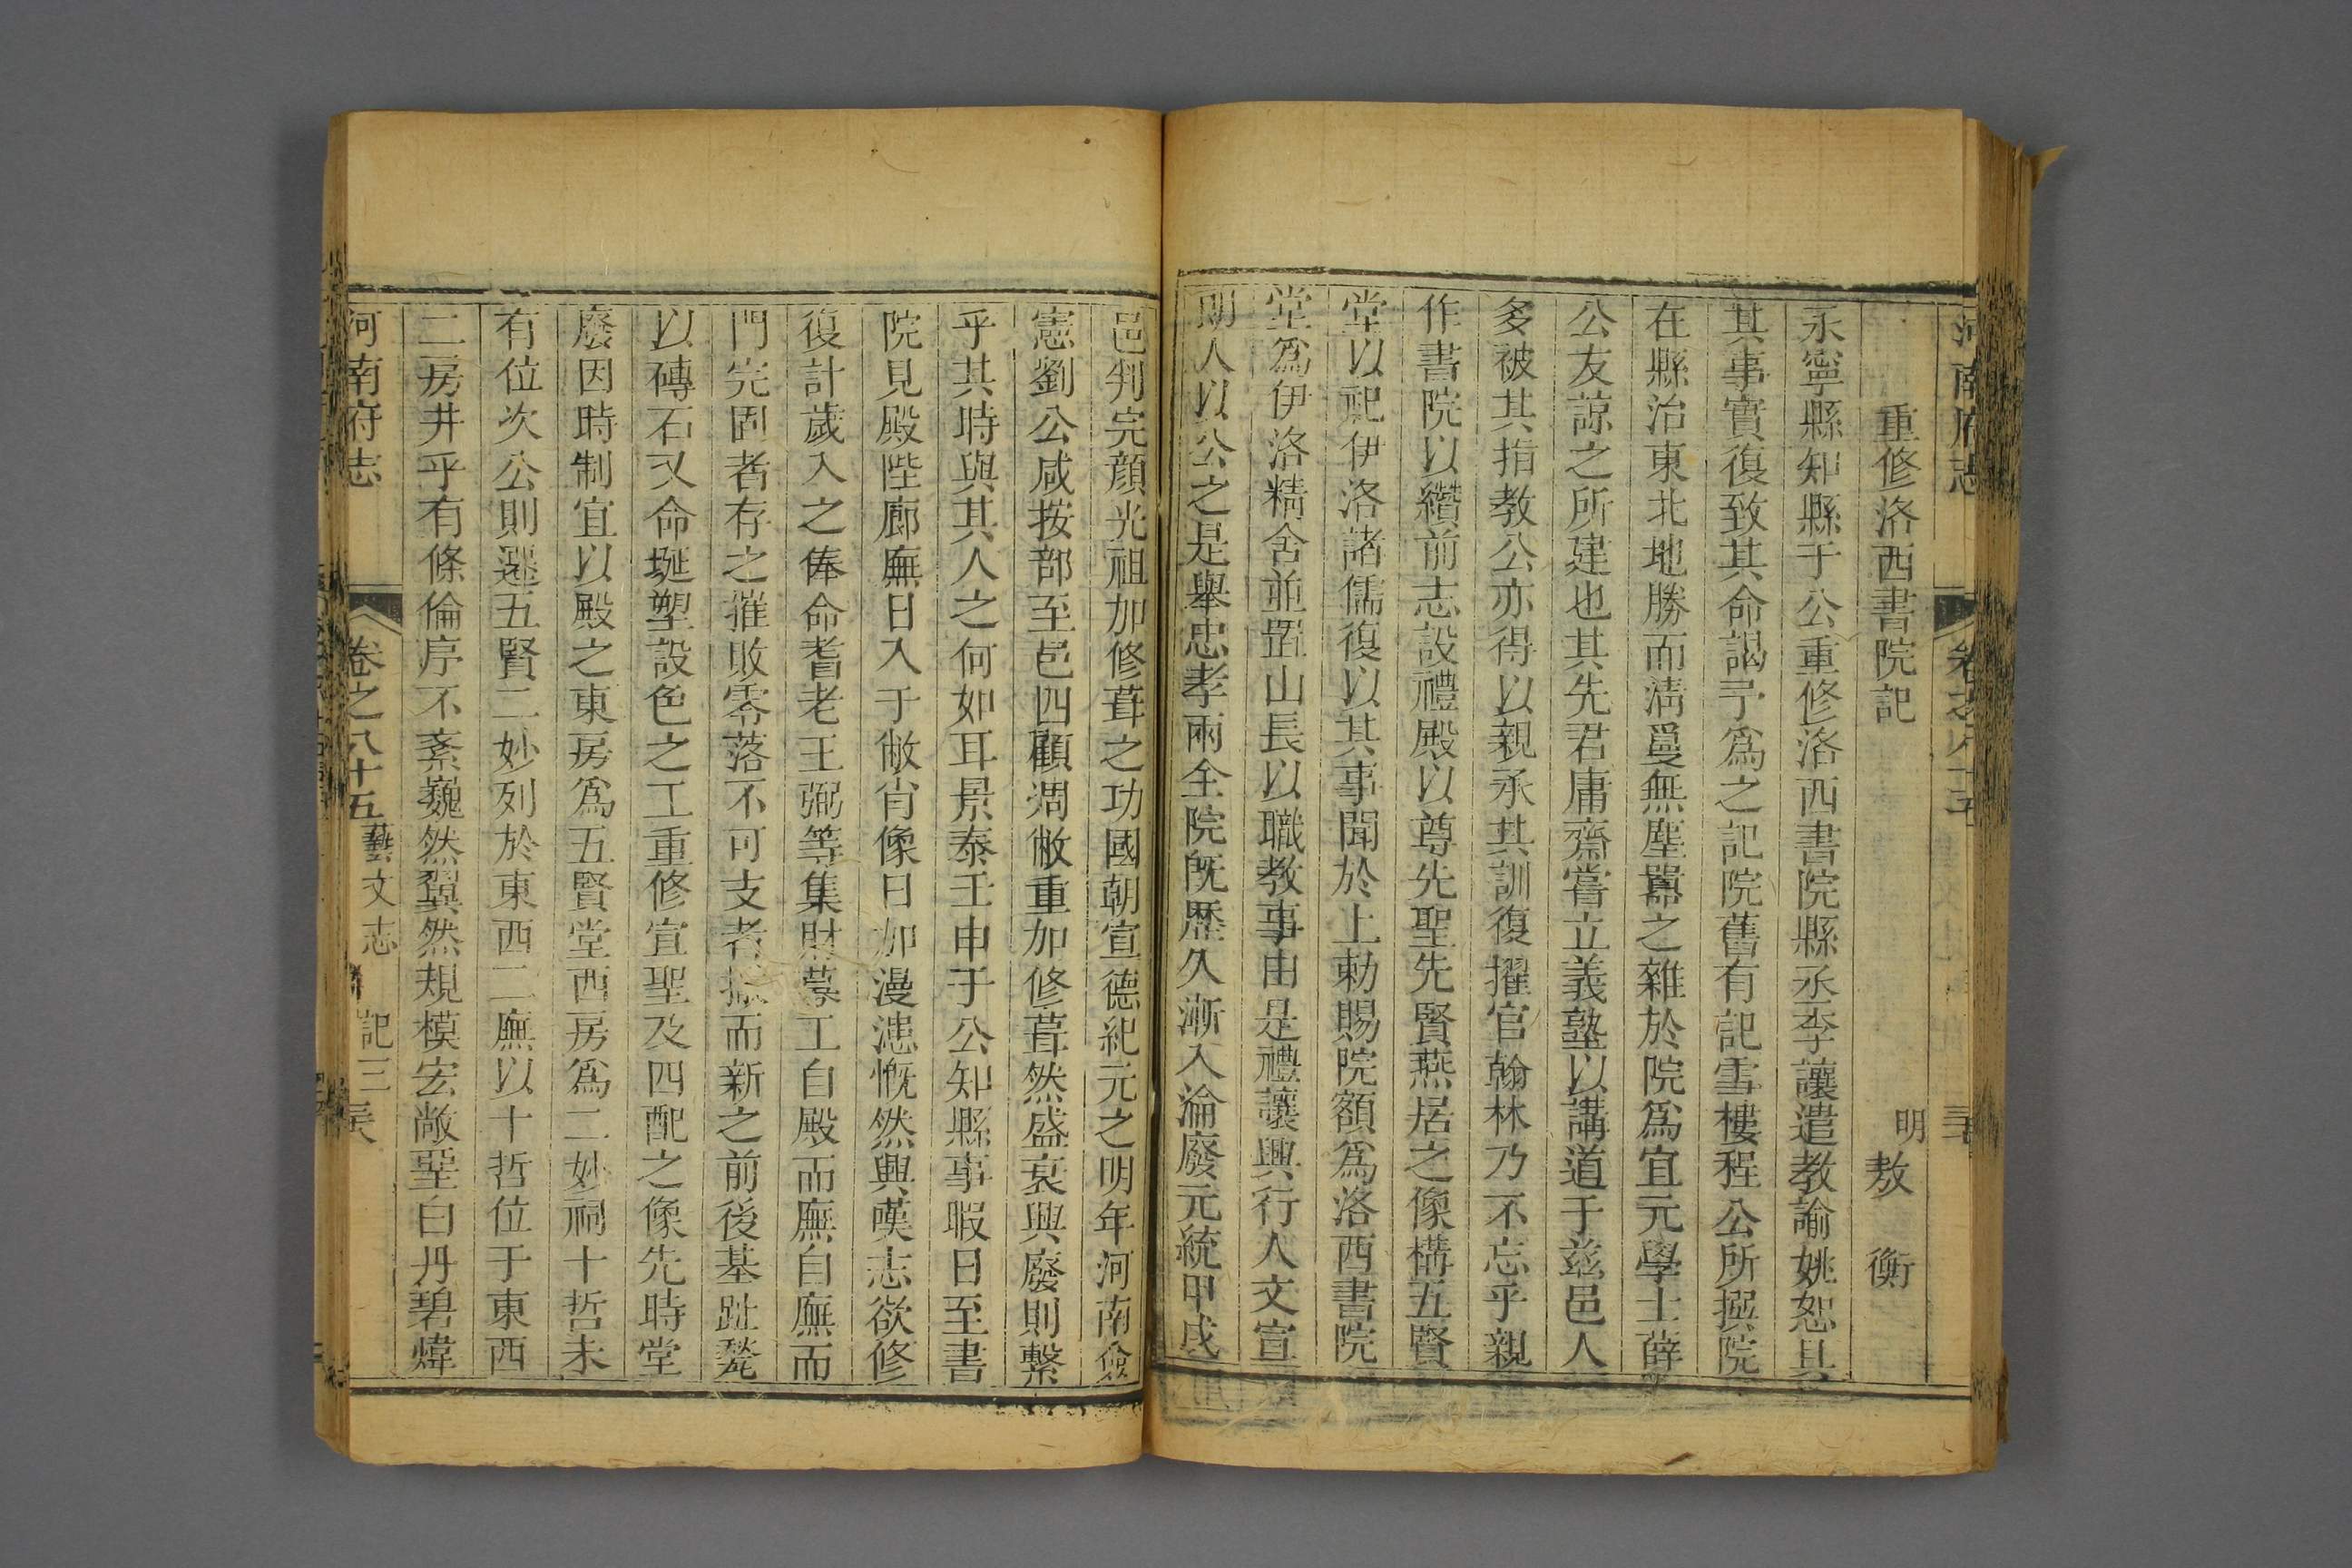 河南府志 卷之八十五
重修洛西書院記
明 敖 衡
永寧縣知縣于公重修洛西書院縣丞李讓遣教諭姚恕具
其事實復致其命謁予爲之記院舊有記雪樓程公所撰院
在縣治東北地勝而淸夐無塵囂之雜於院爲宜元學士薛
公友諒之所建也其先君庸齋嘗立義塾以講道于茲邑人
多被其指教公亦得以親承其訓復擢官翰林乃不忘乎親
作書院以纘前志設禮殿以尊先聖先賢燕居之像構五賢
堂以祀伊洛諸儒復以其事聞於上勅賜院額爲洛西書院
堂爲伊洛精舍並置山長以職教事由是禮讓興行人文宣
朗人以公之是舉忠孝兩全院旣歷久漸入淪廢元統甲戌
邑判完顏光祖加修葺之功國朝宣德紀元之明年河南僉
憲劉公咸按部至邑四顧凋敝重加修葺然盛衰興廢則繫
乎其時與其人之何如耳景泰壬申于公知縣事暇日至書
院見殿陛廊廡日入于敝肖像日加漫漶慨然興嘆志欲修
復計歲入之俸命耆老王弼等集財募工自殿而廡自廡而
門完固者存之摧敗零落不可支者撤而新之前後基趾甃
以磚石又命埏塑設色之工重修宣聖及四配之像先時堂
廢因時制宜以殿之東房爲五賢堂西房爲二妙祠十哲未
有位次公則遷五賢二妙列於東西二廡以十哲位于東西
二房井乎有條倫序不紊巍然翼然規模宏敞堊白丹碧煒
河南府志 卷之八十五 藝文志 記三